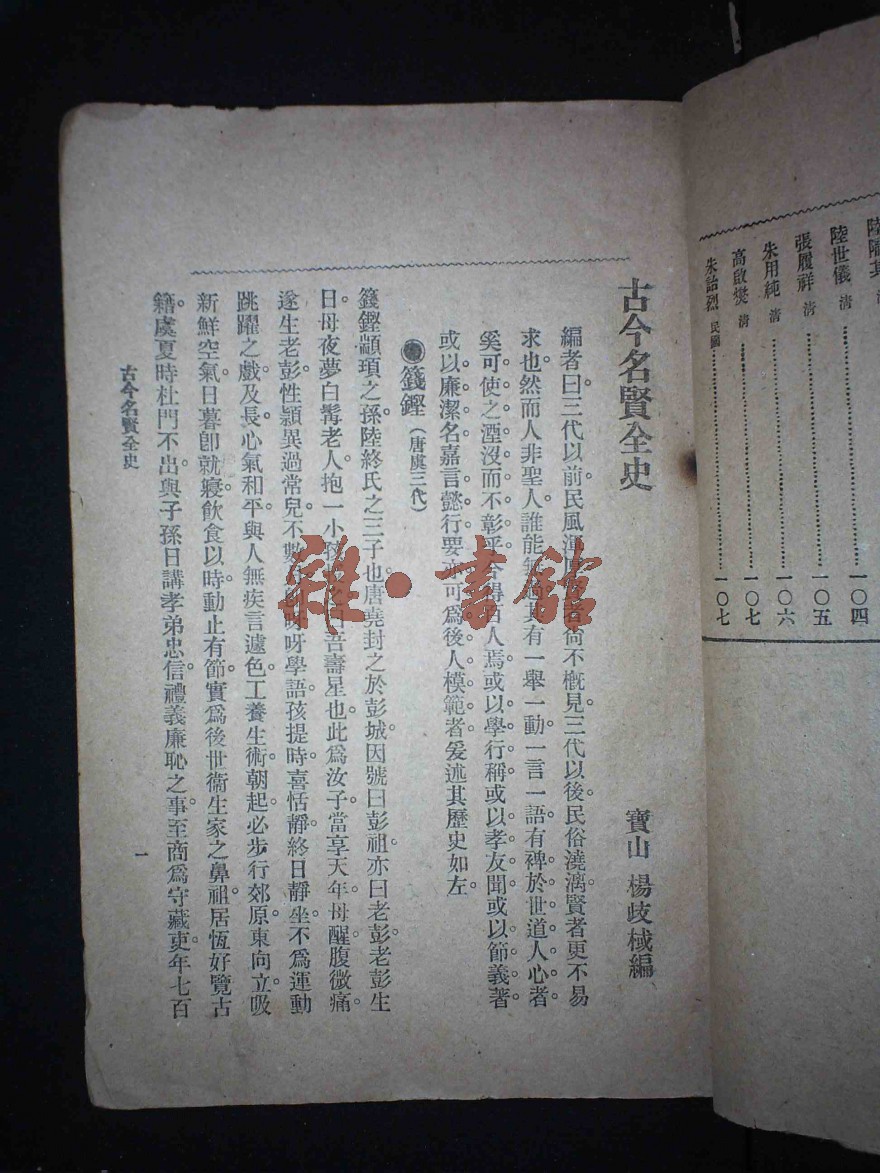 陸世儀 清……一〇四
張履祥 清……一〇五
朱用純 清……一〇六
高啟燮 清……一〇七
朱詒烈 民國……一〇七
古今名賢全史
寶山 楊歧棫編
編者曰三代以前民風渾厚賢者尚不概見三代以後民俗澆漓。賢者更不易
求也。然而人非聖人。誰能無過其有一舉一動一言一語。有裨於世道人心者。
奚可使之湮沒而不彰乎。得百人焉。或以學行稱。或以孝友聞。或以節義著。
或以廉潔名。嘉言懿行。要亦可爲後人模範者。爰述其歷史如左。
籛鏗(唐虞三代)
籛鏗。顓頊之孫。陸終氏之三子也。唐堯封之於彭城。因號曰彭祖。亦曰老彭。老彭生
日。母夜夢白髯老人。抱一小孩 吾壽星也。此爲汝子。當享天年。母醒腹微痛。
遂生老彭。性穎異過常兒。不數 呀學語。孩提時喜恬靜。終日靜坐。不爲運動
跳躍之戲。及長。心氣和平。與人無疾言遽色。工養生術。朝起必步行郊原。東向立。吸
新鮮空氣。日暮卽就寢。飲食以時。動止有節。實爲後世衞生家之鼻祖。居恆好覽古
籍。虞夏時杜門不出。與子孫日講孝弟忠信禮義廉恥之事。至商爲守藏吏。年七百
古今名賢全史
一
雜·書館